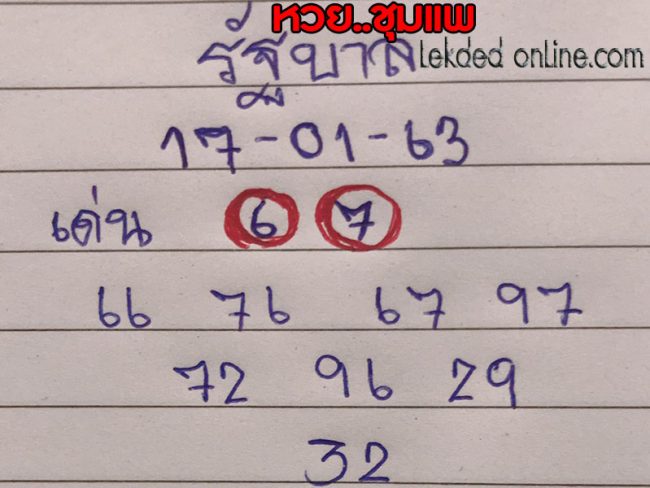 หวย..ชุมแพ
รัฐบาล Lekded online.com
17-01-63
เด่น 6 7
66 76 67 97
72 96 29
32